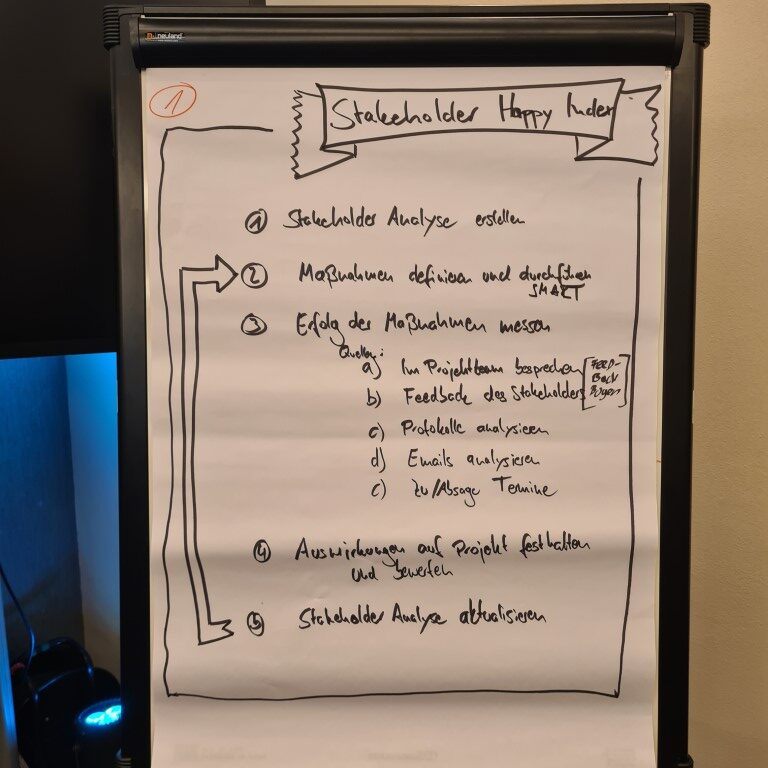 neuland
1
Stakeholder Happy Index
1 Stakeholder Analyse erstellen
2 Maßnahmen definieren und durchführen
SMART
3 Erfolg der Maßnahmen messen
Quellen:
a) Im Projektteam besprechen
b) Feedback des Stakeholders
[FEED-
BACK
Bogen]
c) Protokolle analysieren
d) Emails analysieren
c) Zu/Absage Termine
4 Auswirkungen auf Projekt festhalten
und bewerten
5 Stakeholder Analyse aktualisieren